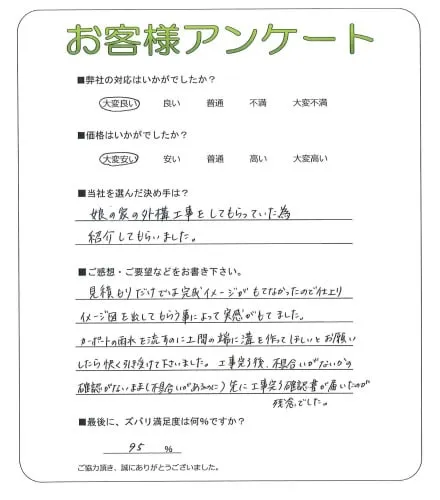 お客様アンケート
■弊社の対応はいかがでしたか?
大変良い 良い 普通 不満 大変不満
■価格はいかがでしたか?
大変安い 安い 普通 高い 大変高い
■当社を選んだ決め手は?
娘の家の外構工事をしてもらっていた為
紹介してもらいました。
■ご感想・ご要望などをお書き下さい。
見積もりだけでは完成イメージがもてなかったので仕上り
イメージ図を出してもらう事によって実感がもてました。
カーポートの雨水を流すのに土間の端に溝を作ってほしいとお願い
したら快く引き受けて下さいました。工事完了後、不具合いがないかの
確認がないまま(不具合いがあるのに)先に工事完了確認書が届いたのが
残念でした。
■最後に、ズバリ満足度は何%ですか?
95 %
ご協力頂き、誠にありがとうございました。